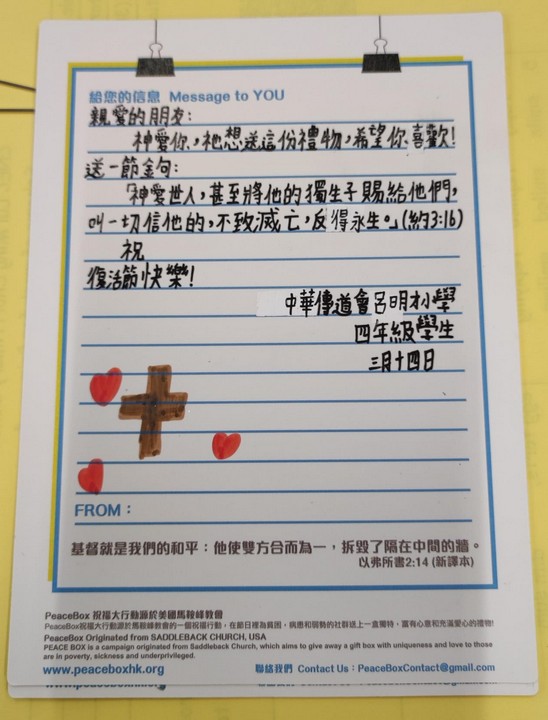 給您的信息 Message to YOU
親愛的朋友：
神愛你，祂想送這份禮物，希望你喜歡！
送一節金句：
「神愛世人，甚至將他的獨生子賜給他們，
叫一切信他的，不致滅亡，反得永生。」(約3:16)
祝
復活節快樂！
中華傳道會呂明才小學
四年級學生
三月十四日
FROM：
基督就是我們的和平：他使雙方合而為一，拆毀了隔在中間的牆。
以弗所書2:14 (新譯本)
PeaceBox 祝福大行動源於美國馬鞍峰教會
PeaceBox祝福大行動源於馬鞍峰教會的一個祝福行動，在節日裡為貧困，病患和弱勢的社群送上一盒獨特，富有心意和充滿愛心的禮物!
PeaceBox Originated from SADDLEBACK CHURCH, USA
PEACE BOX is a campaign originated from Saddleback Church, which aims to give away a gift box with uniqueness and love to those
are in poverty, sickness and underprivileged.
www.peaceboxhk.org 聯絡我們 Contact Us：PeaceBoxContact@gmail.com